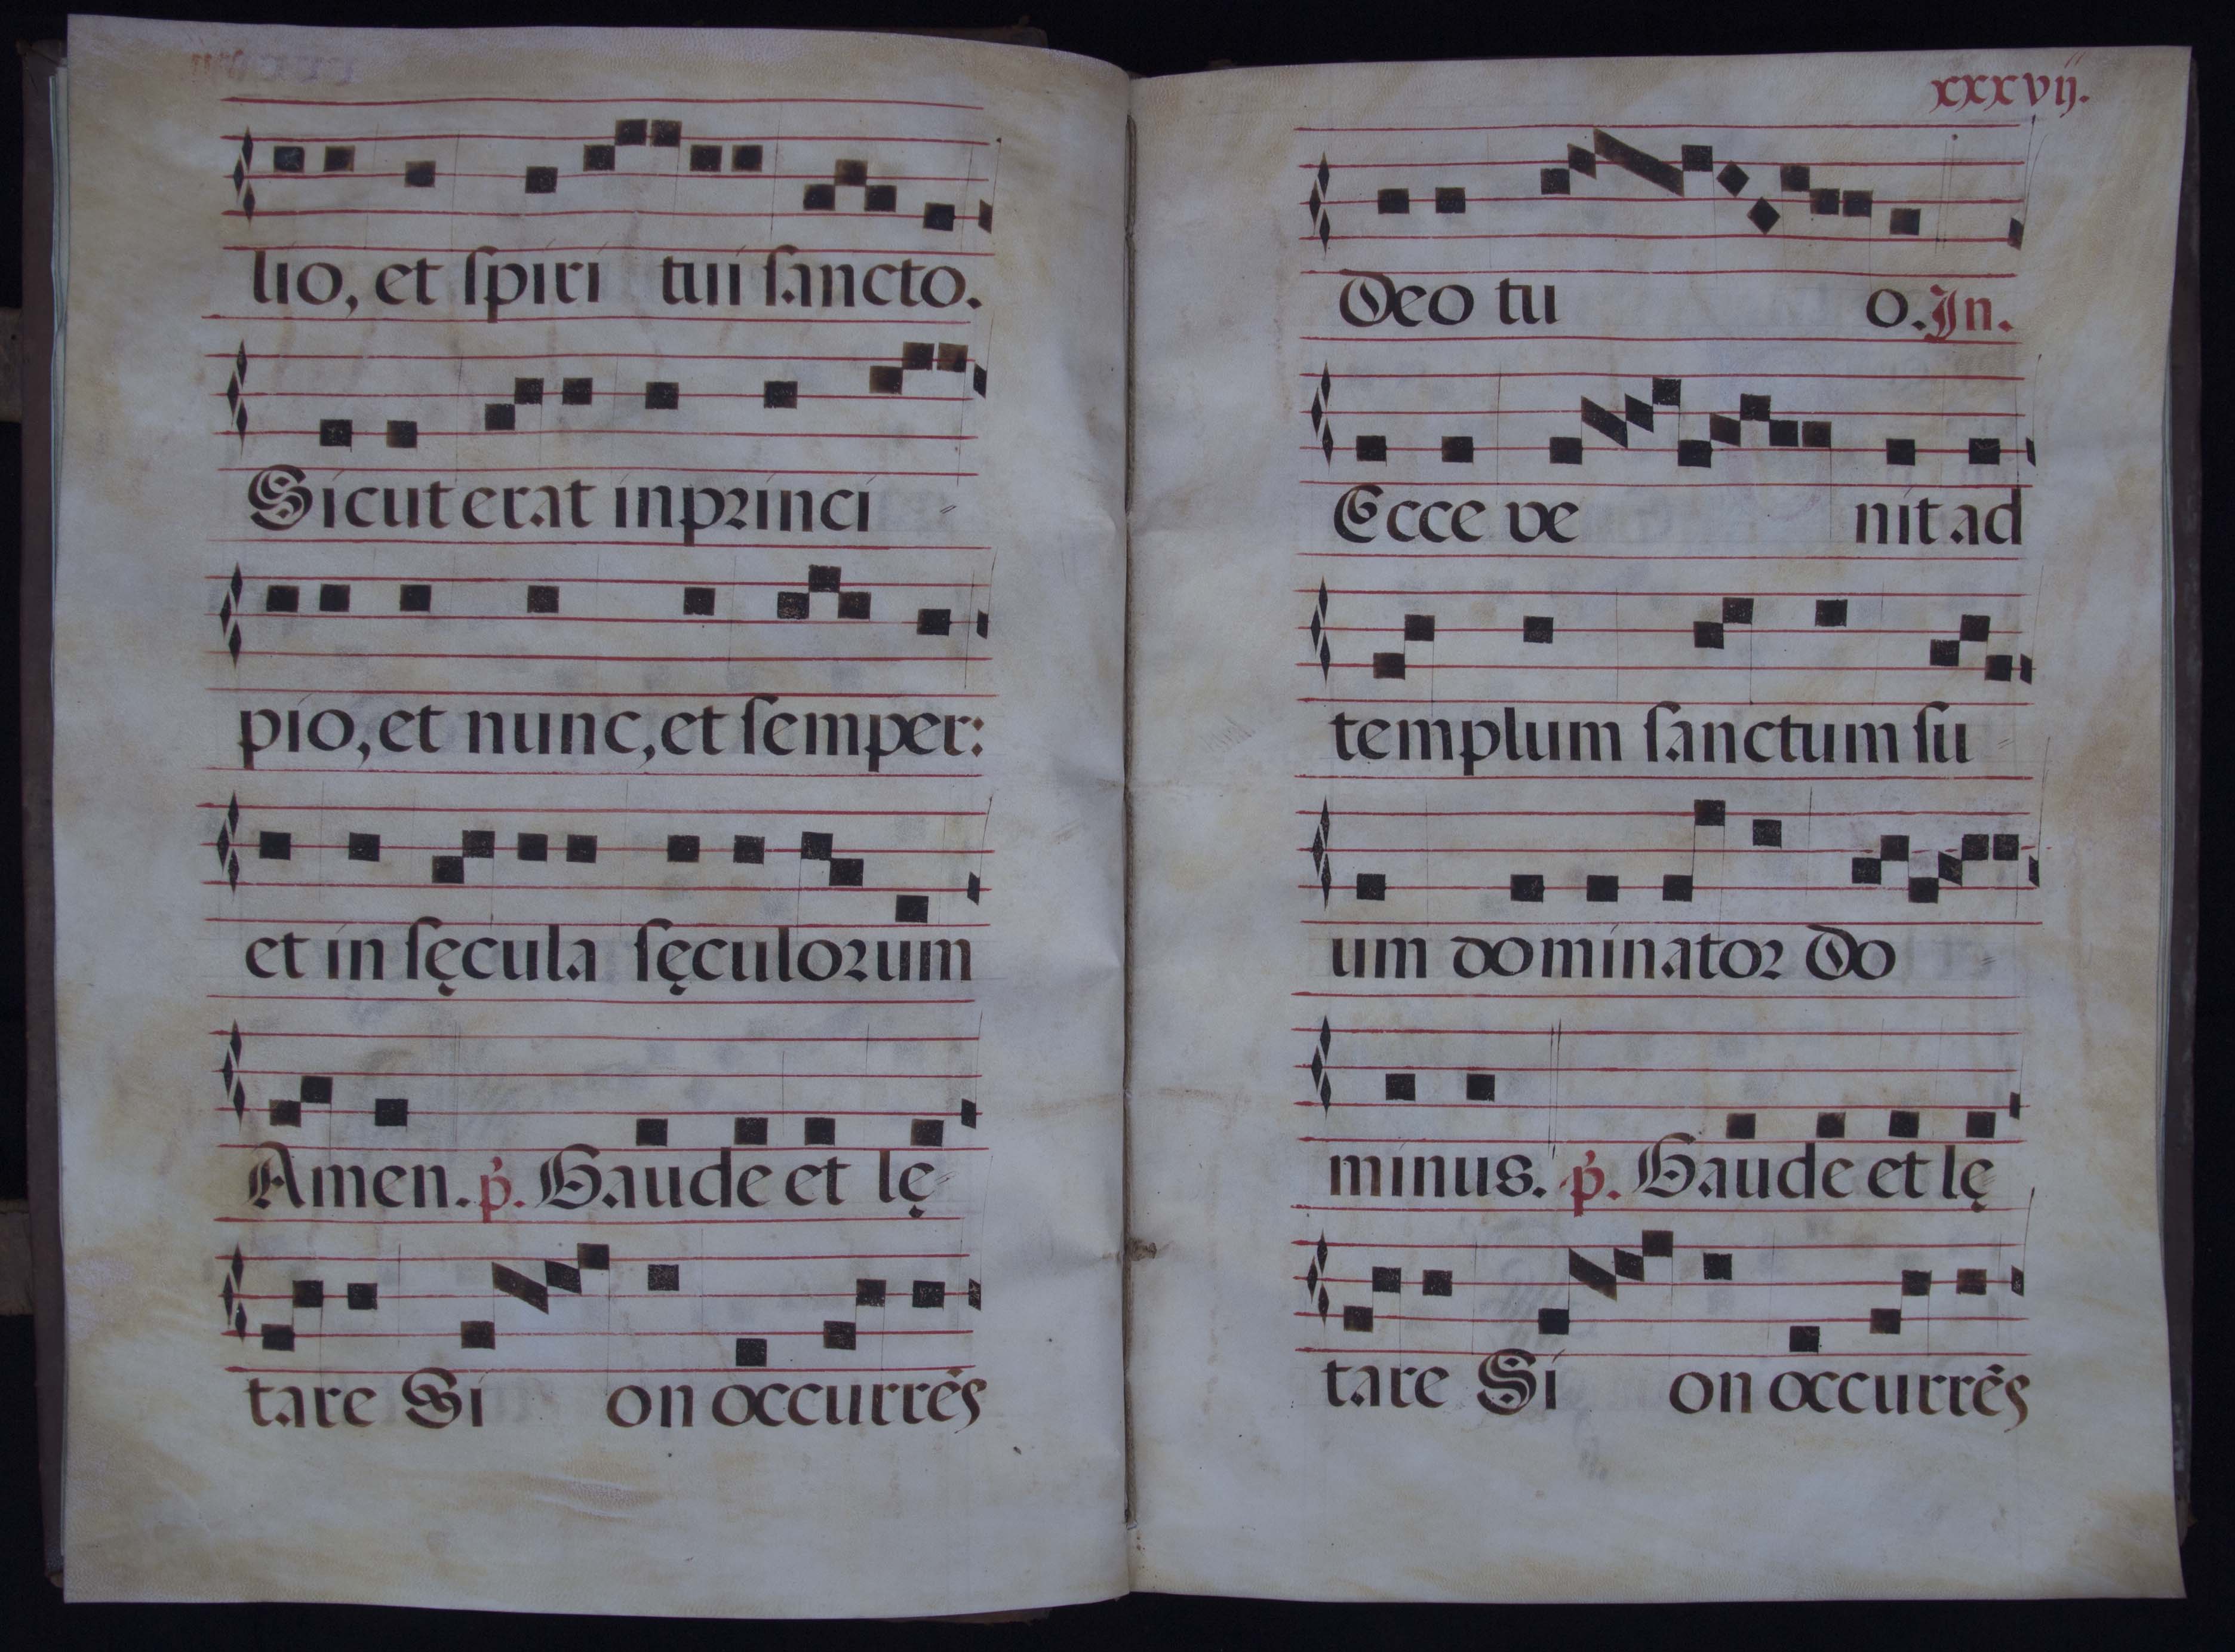 lio, et ſpiri tui ſancto.
Sicut erat in princi-
pio, et nunc, et ſemper:
et in ſęcula ſęculorum
Amen. p̃. Gaude et lę-
tare Si on occurrẽs
xxxvij.
Deo tu o. In.
Ecce ve nit ad
templum ſanctum ſu-
um dominator Do
minus. p̃. Gaude et lę
tare Si on occurrẽs